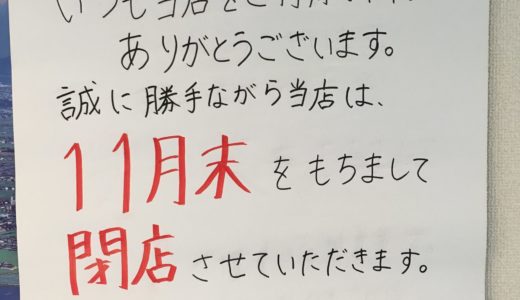 いつも当店をご利用
ありがとうございます。
誠に勝手ながら当店は、
11月末をもちまして
閉店させていただきます。